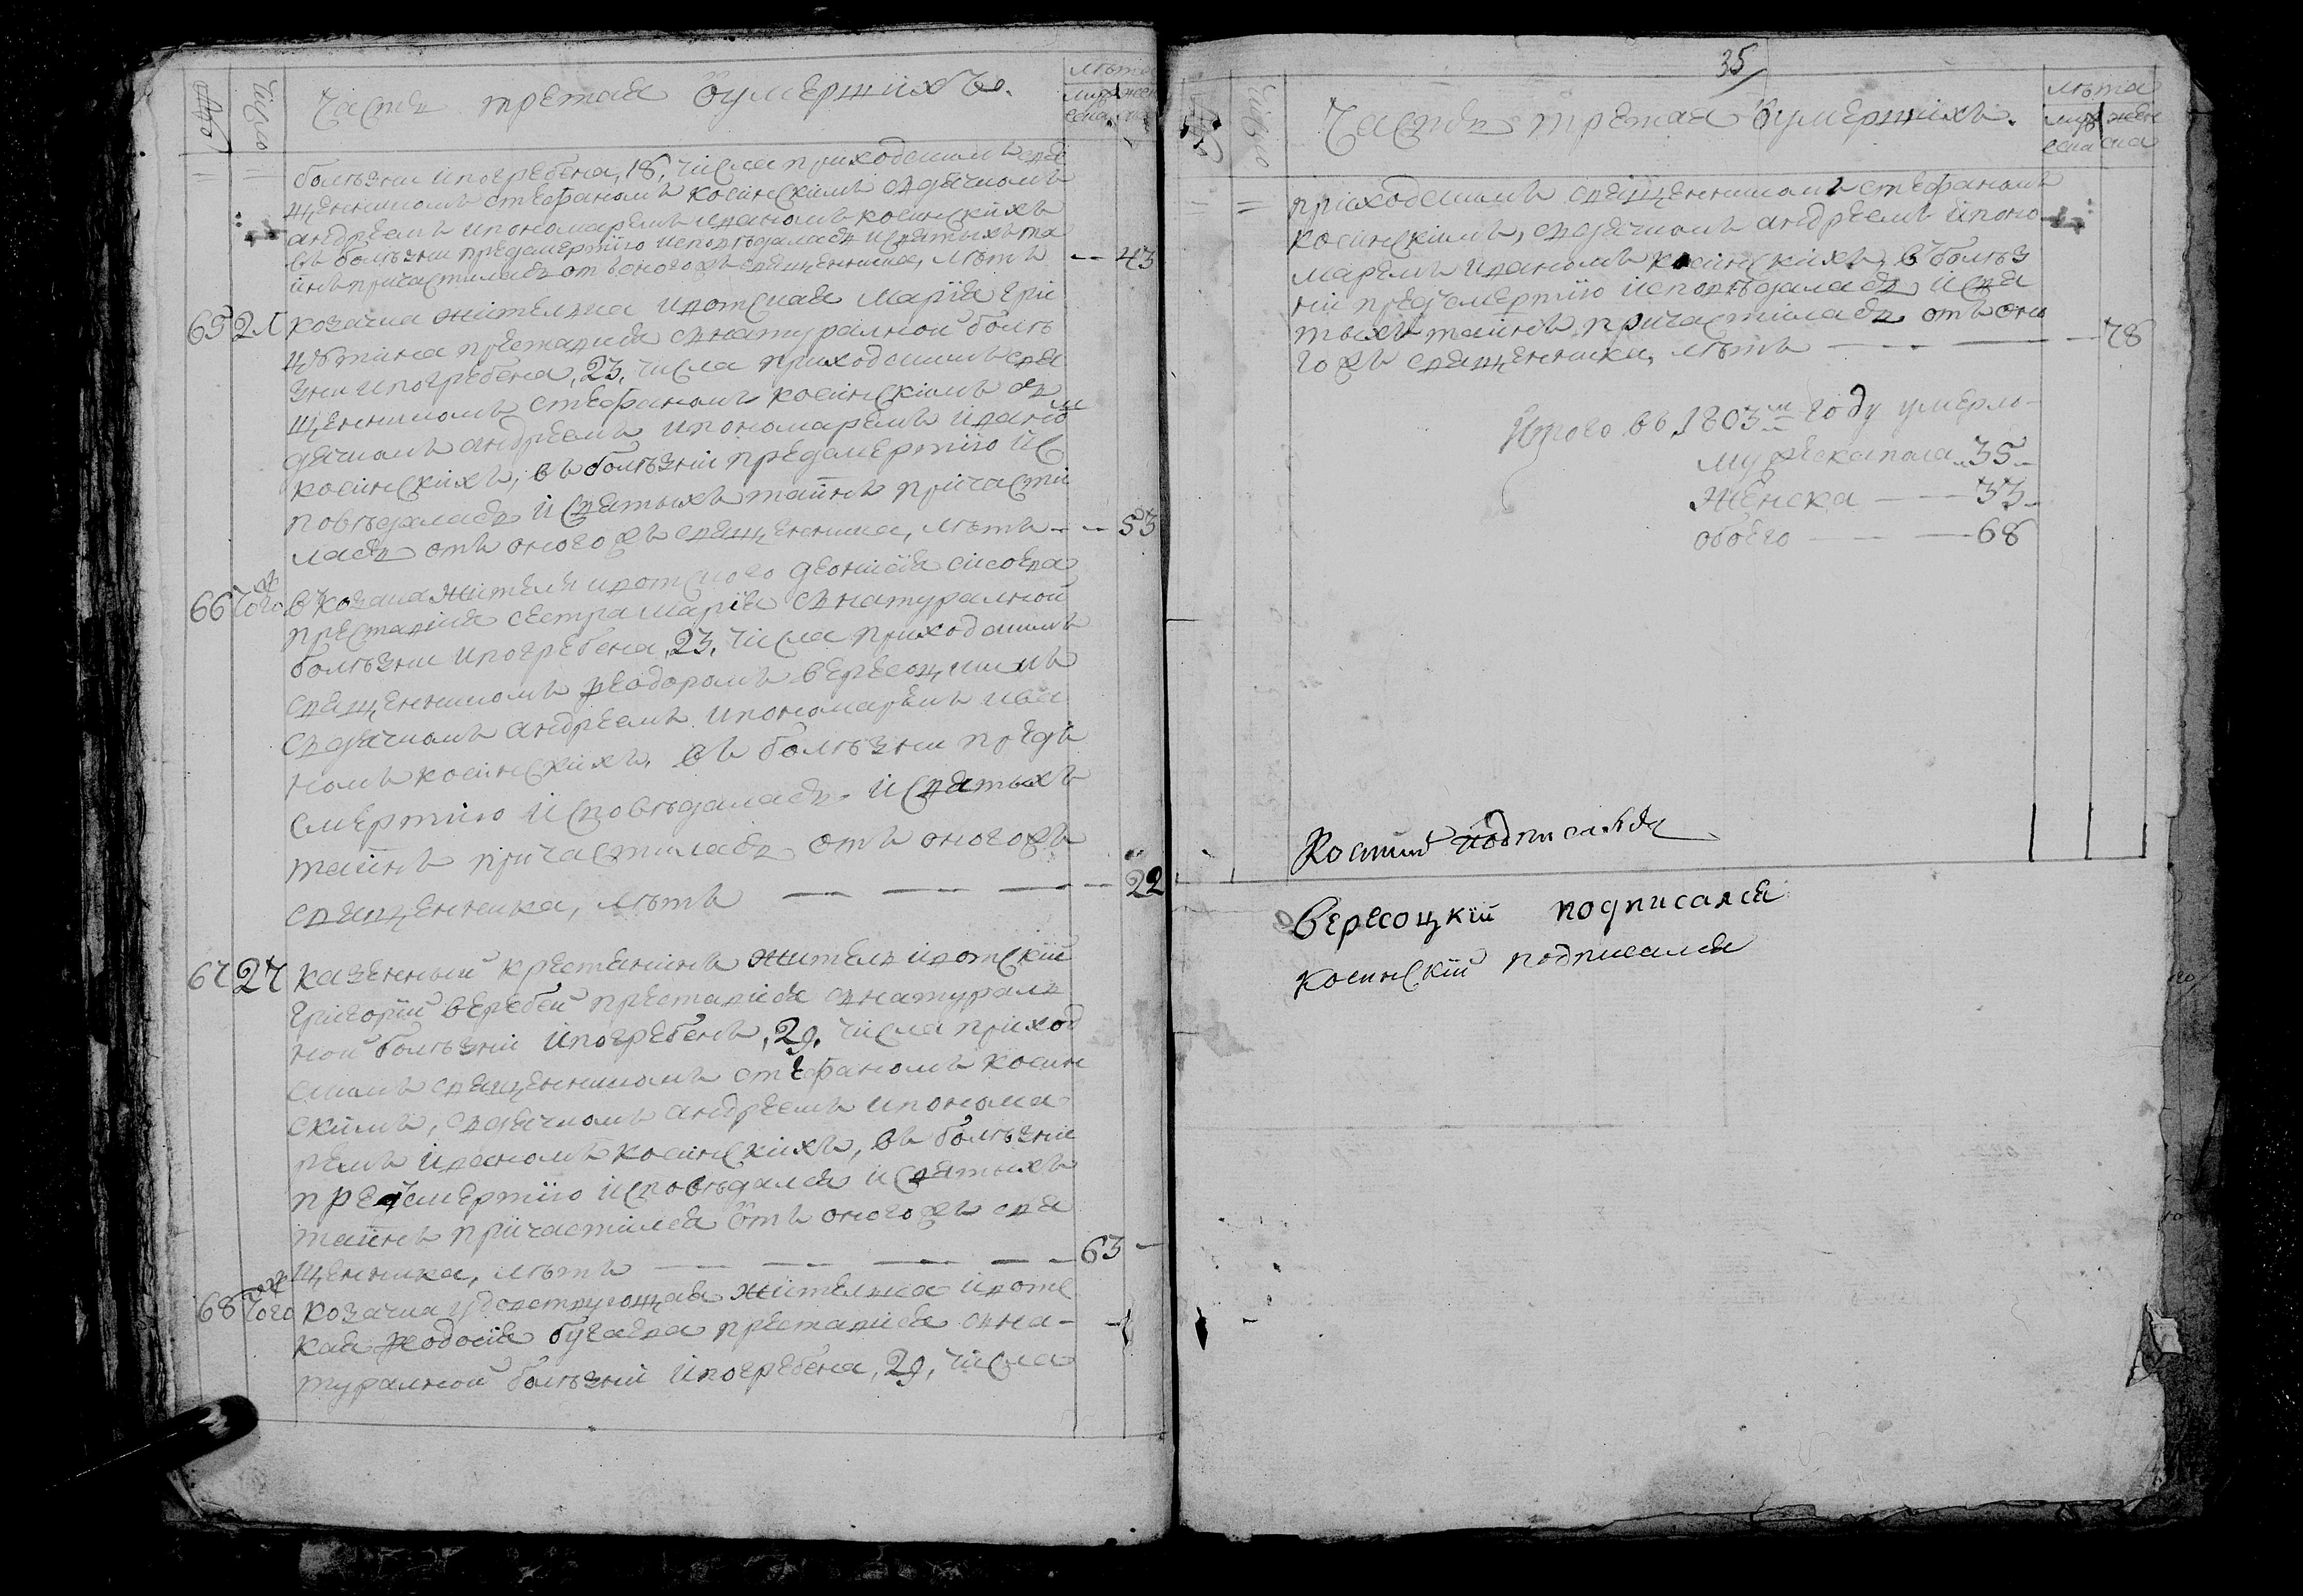 Число
Часть третая ѡумершихъ.
лѣта
муж женс
еска ка
болѣзни ипогребена, 18, числа приходскимъ свя
щенникомъ стефаномъ косинскимъ здячкомъ
андреемъ ипономаремъ иваномъ косинскихъ
въ болѣзни предсмертiю исповѣдалась исвятыхъ та
инъ причастилась отъ оногожъ священника, лѣтъ -- 43
65 21 козачка жителка ивотская марiя гри
цутина преставися знатуралной болѣ
зни ипогребена, 23, числа приходскимъ свя
щенникомъ стефаномъ косинскимъ зъ
дячкомъ андреемъ ипономаремъ ивано
косинскихъ, въ болѣзнiи предсмертiю ис
повѣдалась исвятыхъ таинъ причасти
лась отъ оногожъ священника, лѣтъ -- -- 53
66 того ж в козака жителя ивотского деонисiя сисоева
преставися сестра марiя знатуралной
болѣзни ипогребена, 23, числа приходскимъ
священникомъ феодоромъ вересоцкимъ
здячкомъ андреемъ ипономаремъ ива
номъ косинскихъ, въ болѣзни предъ
смертiю исповѣдалась исвятыхъ
таинъ причастилась отъ оногожъ
священника, лѣтъ — — — -- 22
67 27 казенный крестянинъ жителъ ивотскiй
григорiй веребей преставися знатурал
ной болѣзнiи ипогребенъ, 29, числа приход
скимъ священникомъ стефаномъ косин
скимъ, здячкомъ андреемъ ипонома
ремъ иваномъ косинскихъ, въ болѣзни
предсмертiю исповѣдался исвятыхъ
таинъ причастился ѡтъ оногожъ свя
щенника, лѣтъ — — — — — — 63 -
68 того ж козачка жителка ивотс
кая феодосiя бугаева преставися зна-
туралной болѣзнiи ипогребена, 29, числа
35
Число
Часть третая ѡумершихъ.
лѣта
муж жен
еска ска
прiиходскимъ священникомъ стефаномъ
косинскимъ, здячкомъ андреемъ ипоно
маремъ иваномъ косинскихъ, въ болѣз
нiи предсмертiю исповѣдалась исвя
тыхъ таинъ причастилась отъ оно
гожъ священника, лѣтъ — — — -- 78
Итого въ 1803м году умерло-
мужеска пола -- 35 -
женска — 33 -
обоего — — 68
вересоцкiй подписался
косинскiй подписался